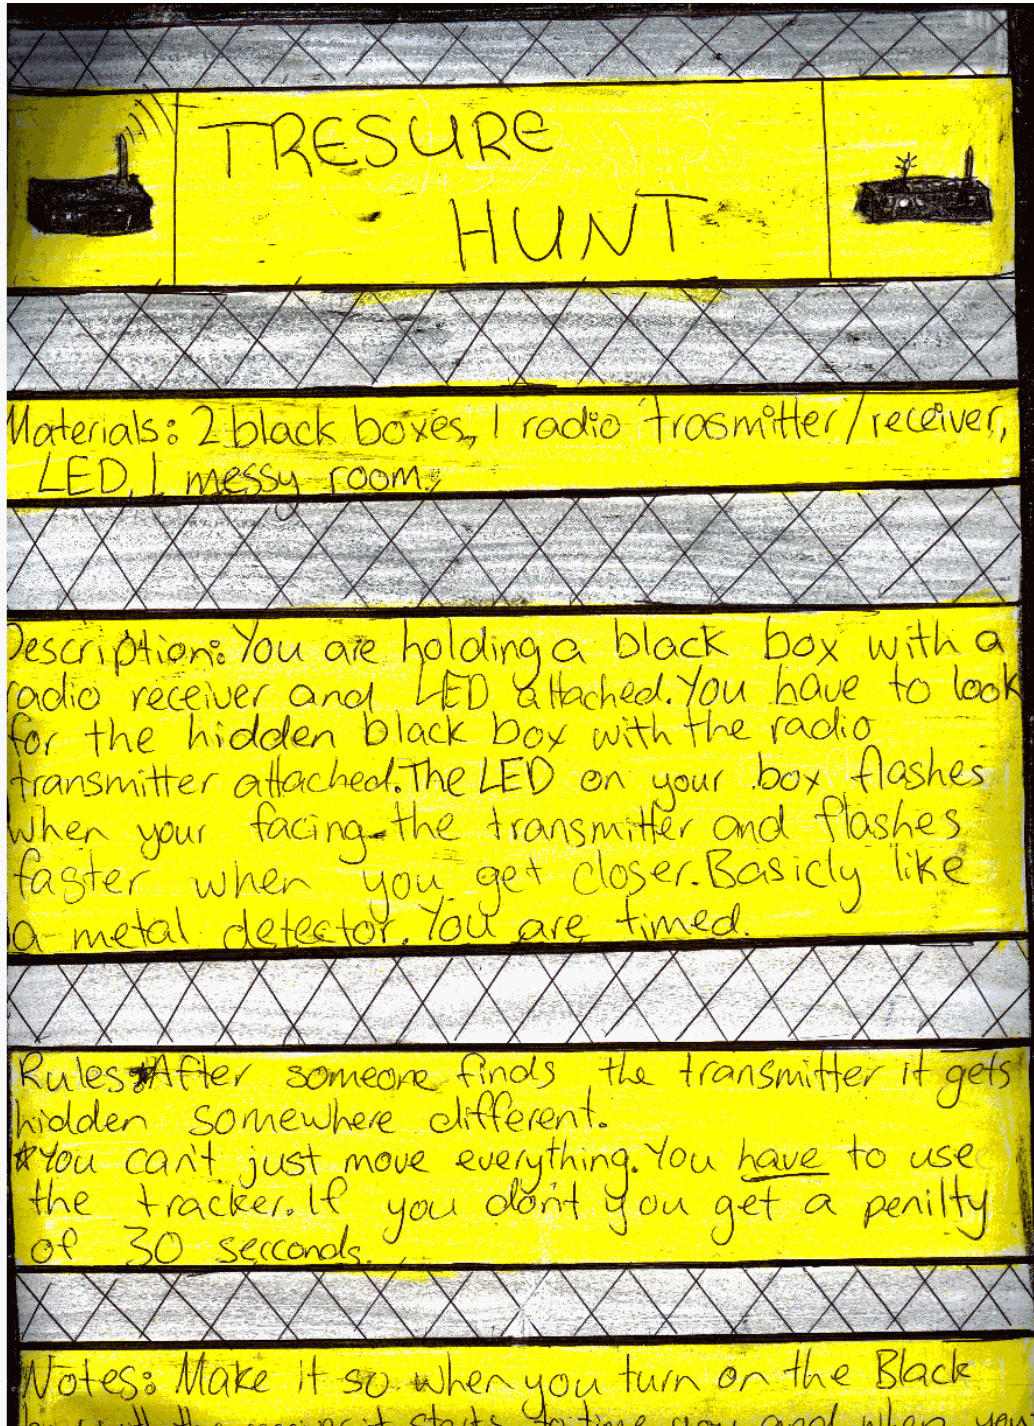 TRESURE
HUNT
Materials: 2 black boxes, 1 radio trasmitter/receiver,
LED, 1 messy room.
Description: You are holding a black box with a
radio receiver and LED attached. You have to look
for the hidden black box with the radio
transmitter attached. The LED on your box flashes
when your facing the transmitter and flashes
faster when you get closer. Basicly like
a metal detector. You are timed.
Rules: *After someone finds the transmitter it gets
hidden somewhere different.
*You can't just move everything. You have to use
the tracker. If you don't you get a penilty
of 30 secconds.
Notes: Make it so when you turn on the Black
it starts to time you and when you